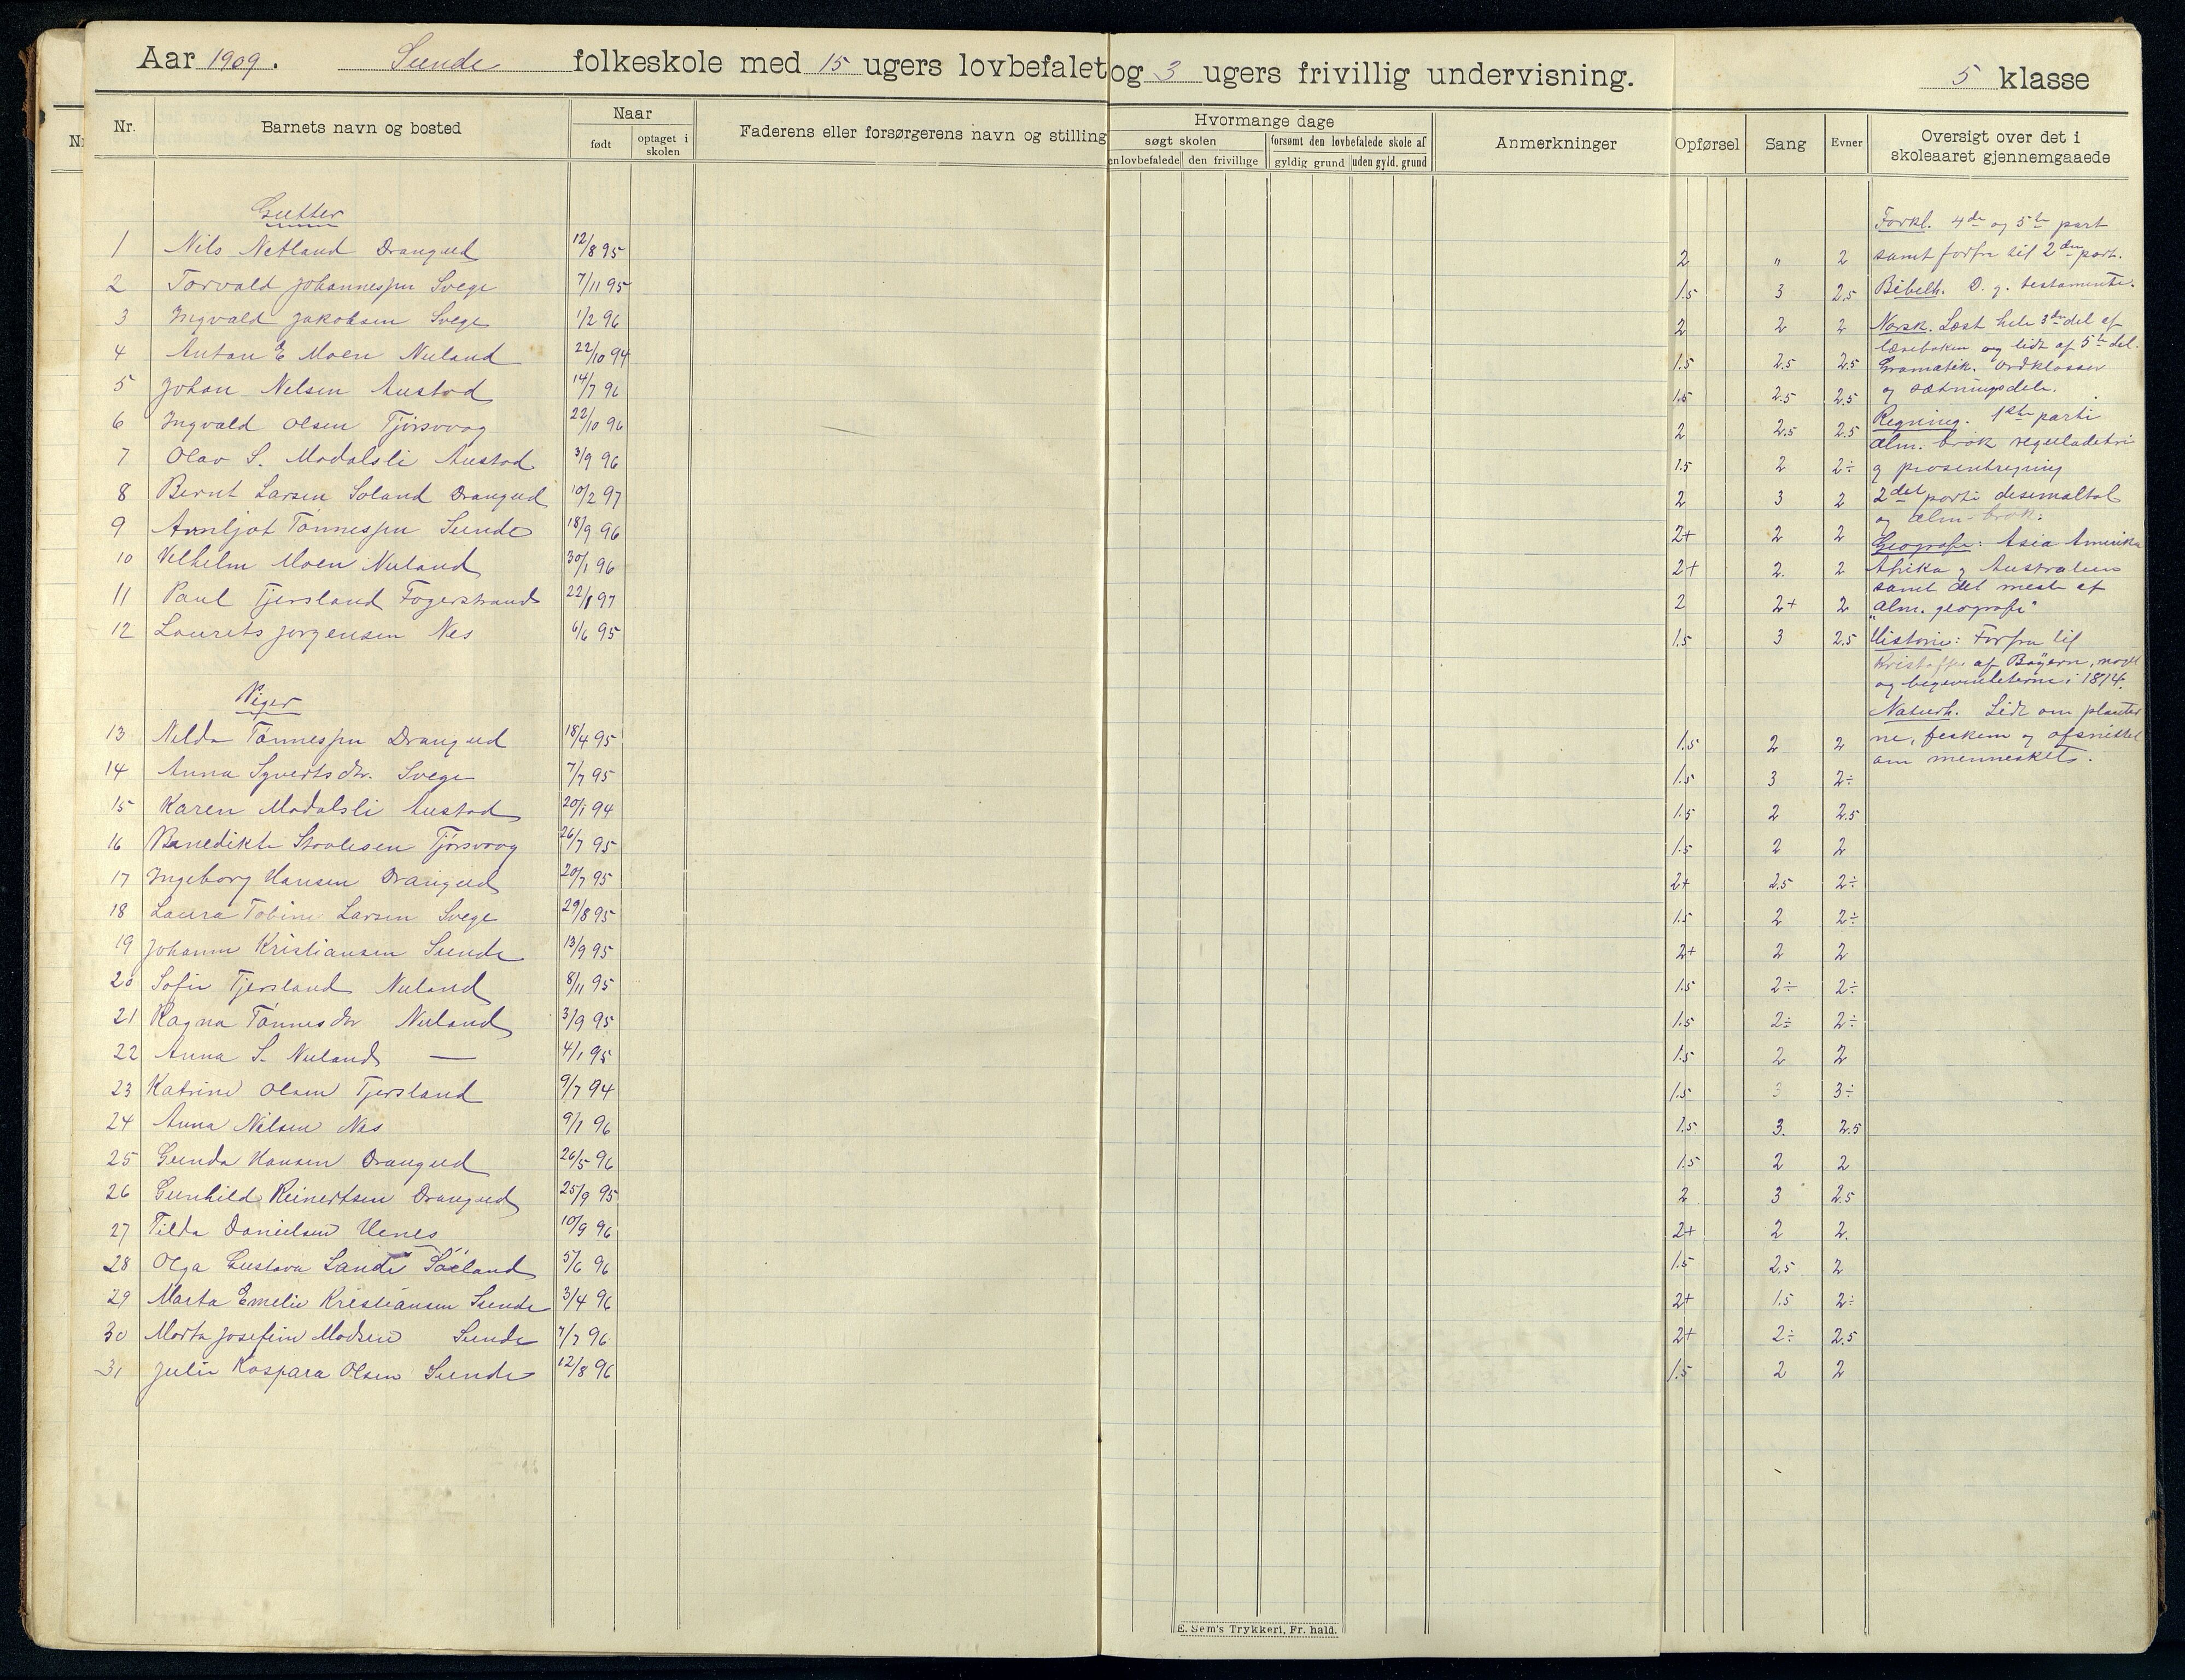 Aar 1909. Sunde folkeskole med 15 ugers lovbefalet og 3 ugers frivillig undervisning. 5 klasse
Nr. Barnets navn og bosted Naar Faderens eller forsørgerens navn og stilling Hvormange dage Anmerkninger Opførsel Sang Evner Oversigt over det i skoleaaret gjennemgaaede
født optaget i skolen søgt skolen forsømt den lovbefalede skole af
en lovbefalede den frivillige gyldig grund uden gyld. grund
Gutter
1 Nils Netland Drangeid 12/8 95 2 " 2
2 Torvald Johannessen Svege 7/11 95 1.5 3 2.5
3 Ingvald Jakobsen Svege 1/2 96 2 2 2
4 Anton E Moen Nuland 22/10 94 1.5 2.5 2.5
5 Johan Nelsen Austad 14/7 96 1.5 2.5 2.5
6 Ingvald Olsen Tjørsvaag 22/10 96 2 2.5 2.5
7 Olav S. Modalsli Austad 3/9 96 1.5 2 2÷
8 Bernt Larsen Soland Drangeid 10/2 97 2 3 2
9 Arnljot Tønnessen Sunde 18/9 96 2+ 2 2
10 Velhelm Moen Nuland 30/1 96 2+ 2. 2
11 Paul Tjersland Fogerstrand 22/1 97 2 2+ 2
12 Laurits Jørgensen Nes 6/6 95 1.5 3 2.5
Piger
13 Nilda Tønnessen Drangeid 18/4 95 1.5 2 2
14 Anna Syvertsdtr. Svege 7/7 95 1.5 3 2÷
15 Karen Modalsli Austad 20/1 94 1.5 2 2.5
16 Benedikte Staalesen Tjørsvaag 26/7 95 1.5 2 2
17 Ingeborg Hansen Drangeid 20/7 95 2+ 2.5 2÷
18 Laura Tobine Larsen Svege 29/8 95 1.5 2 2÷
19 Johanne Kristiansen Sunde 13/9 95 2+ 2 2
20 Sofie Tjersland Nuland 8/11 95 1.5 2÷ 2÷
21 Ragna Tønnesdtr Nuland 3/9 95 1.5 2÷ 2÷
22 Anna S. Nuland — 4/1 95 1.5 2 2
23 Katrine Olsen Tjersland 9/7 94 1.5 3 3÷
24 Anna Nilsen Nes 9/1 96 1.5 3. 2.5
25 Gunda Hansen Drangeid 26/5 96 1.5 2 2
26 Gunhild Reinertsen Drangeid 25/9 95 2 3 2.5
27 Tilda Danielsen Uenes 10/9 96 2+ 2 2.
28 Olga Gustava Lande Søeland 5/6 96 1.5 2.5 2
29 Marta Emelie Kristiansen Sunde 3/4 96 2+ 1.5 2÷
30 Marta Josefine Madsen Sunde 7/7 96 2+ 2÷ 2.5
31 Julie Kaspara Olsen Sunde 12/8 96 1.5 2 2
Forkl. 4de og 5te part
samt forfra til 2den part.
Bibelh. D. g. testamente.
Norsk. Læst hele 3die del af
læseboken og lidt af 5te del.
Gramatik. Ordklasser
og sætningsdele.
Regning. 1ste parti
alm. brøk reguladetri
og prosentregning
2det parti desimaltal
og alm-brøk.
Geografi: Asia Amerika
Afrika og Australien
samt det meste af
"alm. geografi"
Historie: Forfra til
Kristoffer af Bayern,
og begivenheterne i 1814.
Naturh. Lidt om planter
ne, feskem og afsnittet
om mennesket.
E. Sem's Trykkeri, Fr. hald.